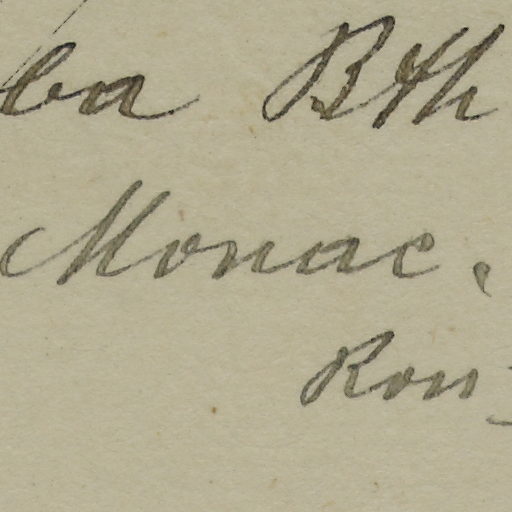 ba Bth
Monac.
Rou